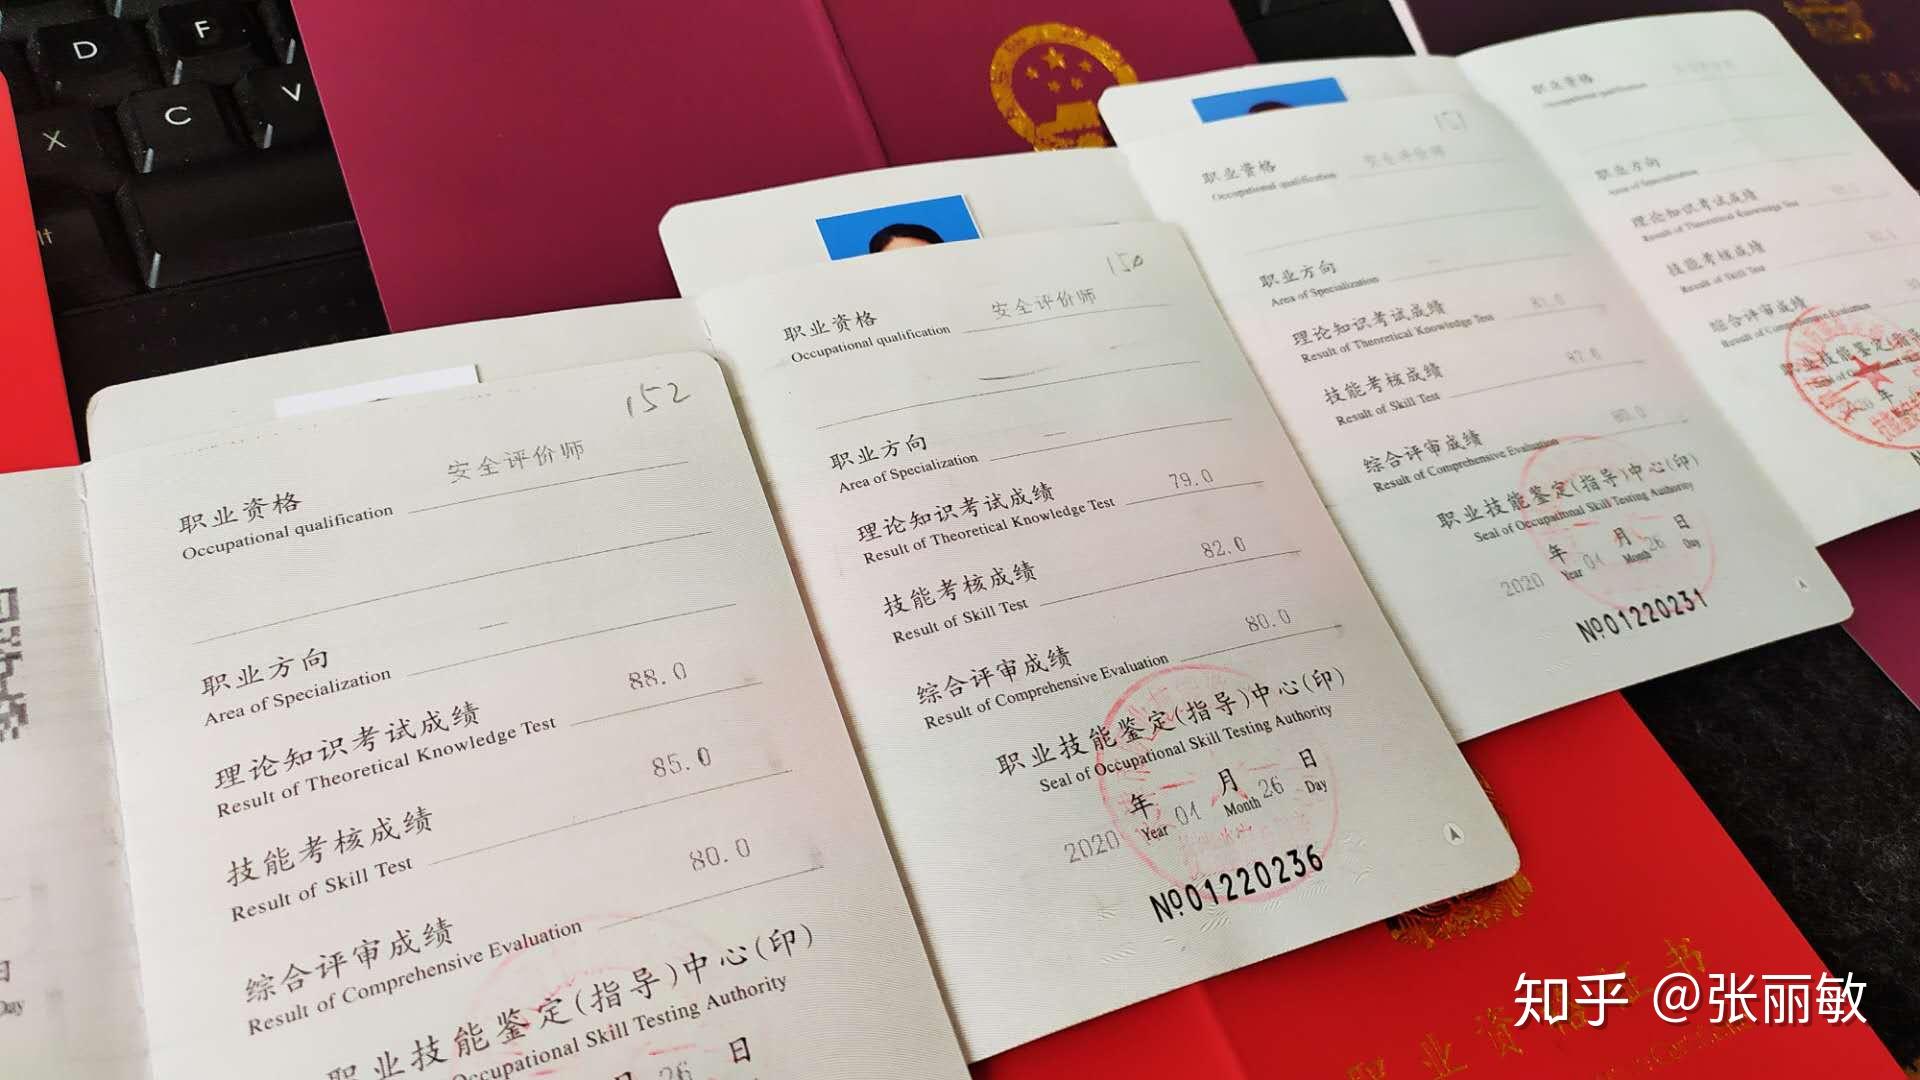 D
F
X
C
V
152
职业资格 安全评价师
Occupational qualification
职业方向 —
Area of Specialization
理论知识考试成绩 88.0
Result of Theoretical Knowledge Test
技能考核成绩 85.0
Result of Skill Test
综合评审成绩 80.0
Result of Comprehensive Evaluation
职业技能鉴定(指导)中心(印)
Occupational Skill Testing Authority
月 26 日
日
Day
150
职业资格 安全评价师
Occupational qualification
职业方向 —
Area of Specialization
理论知识考试成绩 79.0
Result of Theoretical Knowledge Test
技能考核成绩 82.0
Result of Skill Test
综合评审成绩 80.0
Result of Comprehensive Evaluation
职业技能鉴定(指导)中心(印)
Seal of Occupational Skill Testing Authority
2020 年 01 月 26 日
Year Month Day
№01220236
职业资格 安全评价师
Occupational qualification
职业方向
Area of Specialization
理论知识考试成绩 81.0
Result of Theoretical Knowledge Test
技能考核成绩
Result of Skill Test
综合评审成绩 80.0
Result of Comprehensive Evaluation
职业技能鉴定(指导)中心(印)
Seal of Occupational Skill Testing Authority
2020 年 01 月 26 日
Year Month Day
№01220231
职业资格
Occupational qualification
职业方向
Area of Specialization
理论知识考试成绩
Result of Theoretical Knowledge Test
技能考核成绩
Result of Skill Test
综合评审成绩
Result of Comprehensive Evaluation
职业技能鉴定(指导
2020 年
职业资格证书
知乎 @张丽敏